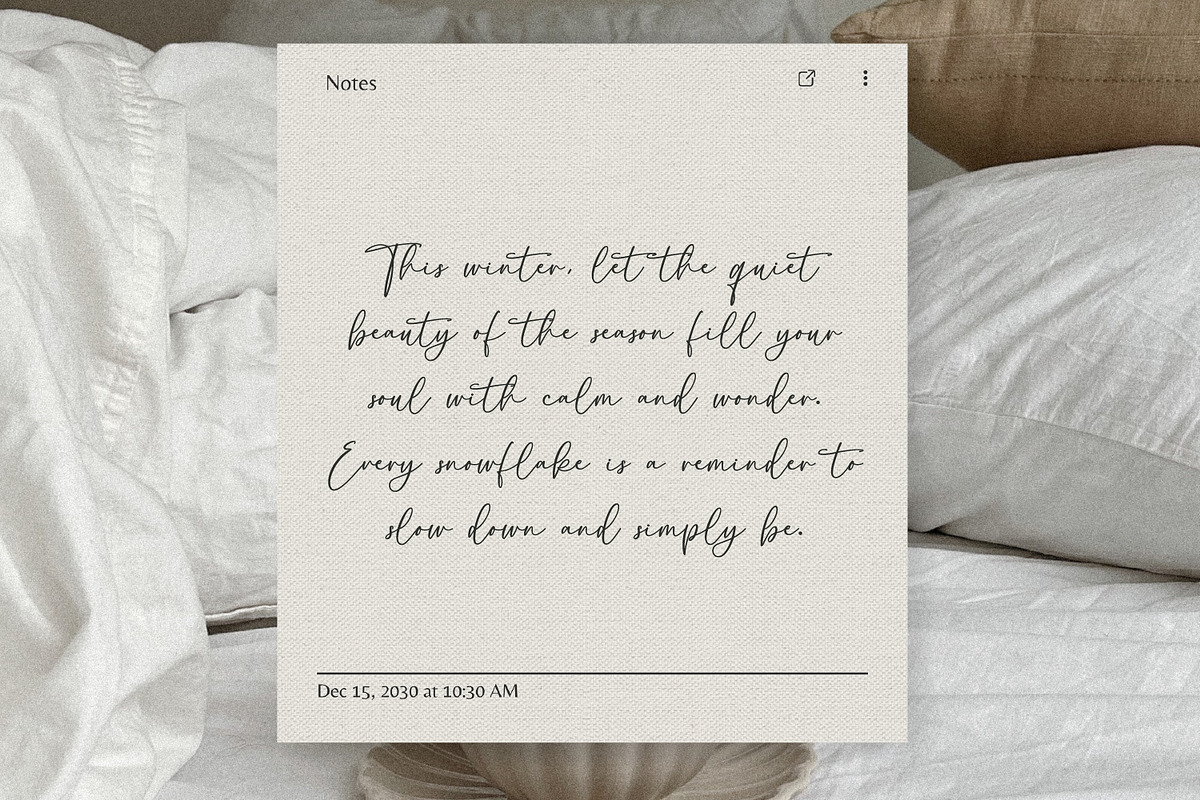 Notes
This winter, let the quiet
beauty of the season fill your
soul with calm and wonder.
Every snowflake is a reminder to
slow down and simply be.
Dec 15, 2030 at 10:30 AM